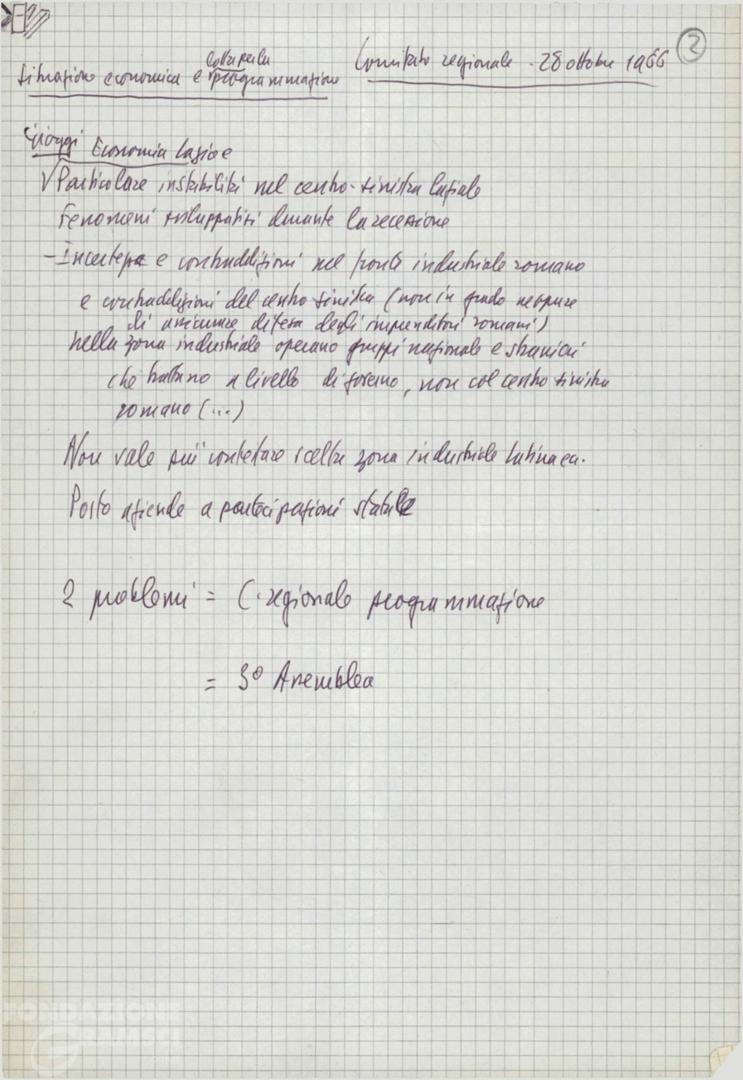 2
lotta per la
Situazione economica e programmazione Comitato regionale - 28 ottobre 1966
Economia laziale
Particolare instabilità nel centro-sinistra laziale
Fenomeni sviluppatisi durante la recessione
- Incertezze e contraddizioni nel fronte industriale romano
e contraddizioni del centro sinistra (non in grado neppure
di assicurare difesa degli imprenditori romani)
nella zona industriale operano gruppi nazionale e stranieri
che trattano a livello di governo, non col centro sinistra
romano (...)
Non vale più contestare scelta zona industriale
Posto aziende a partecipazioni statale
2 problemi = C. regionale programmazione
= 3º Assemblea
FONDAZIONE
GRAMSCI